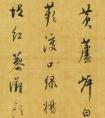 黃蘆岸白
蘋渡口綠楊
堤紅蓼灘頭